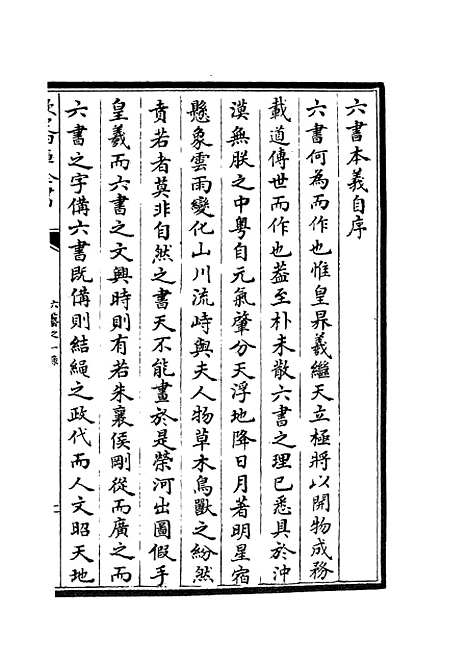 六書本義自序
六書何為而作也惟皇昦羲繼天立極將以開物成務
載道傳世而作也葢至朴未散六書之理已悉具於沖
漠無朕之中粤自元氣肇分天浮地降日月著明星宿
懸象雲雨變化山川流峙與夫人物草木鳥獸之紛然
賁若者莫非自然之書天不能畫於是榮河出圖假手
皇羲而六書之文興時則有若朱襄侯剛從而廣之而
六書之字備六書既備則結繩之政代而人文昭天地
六藝之一錄